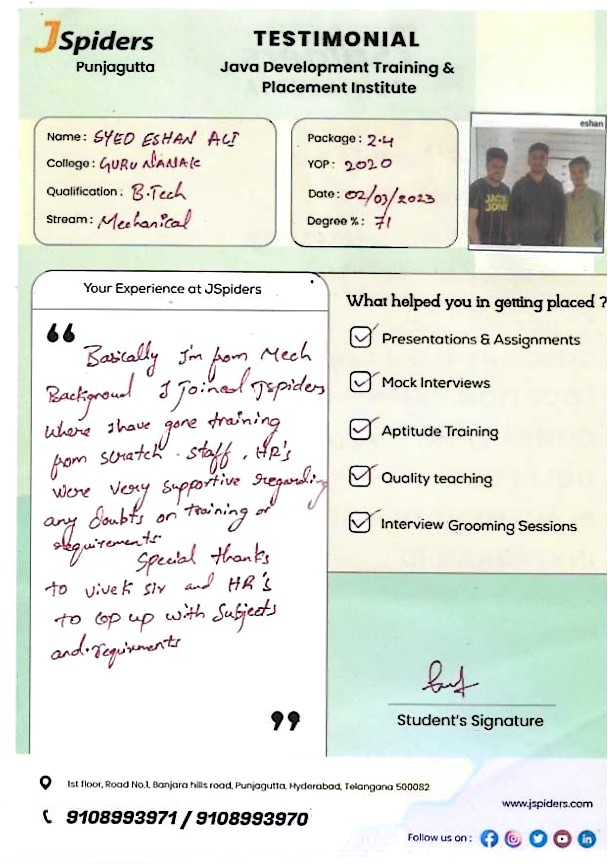 JSpiders
Punjagutta
TESTIMONIAL
Java Development Training &
Placement Institute
Name: SYED ESHAN ALI
College: GURU NANAK
Qualification: B.Tech
Stream: Mechanical
Package: 2.4
YOP: 2020
Date: 02/03/2023
Degree %: 71
eshan
JACK
JONE
Your Experience at JSpiders
“
Basically I'm from Mech
Background I Joined JSpiders
where I have gone training
from scratch. staff, HR's
were very supportive regarding
any doubts on training or
requirements.
Special thanks
to vivek sir and HR's
to cop up with Subjects
and requirments
”
What helped you in getting placed ?
Presentations & Assignments
Mock Interviews
Aptitude Training
Quality teaching
Interview Grooming Sessions
Student's Signature
1st floor, Road No.1, Banjara hills road, Punjagutta, Hyderabad, Telangana 500082
9108993971 / 9108993970
www.jspiders.com
Follow us on :